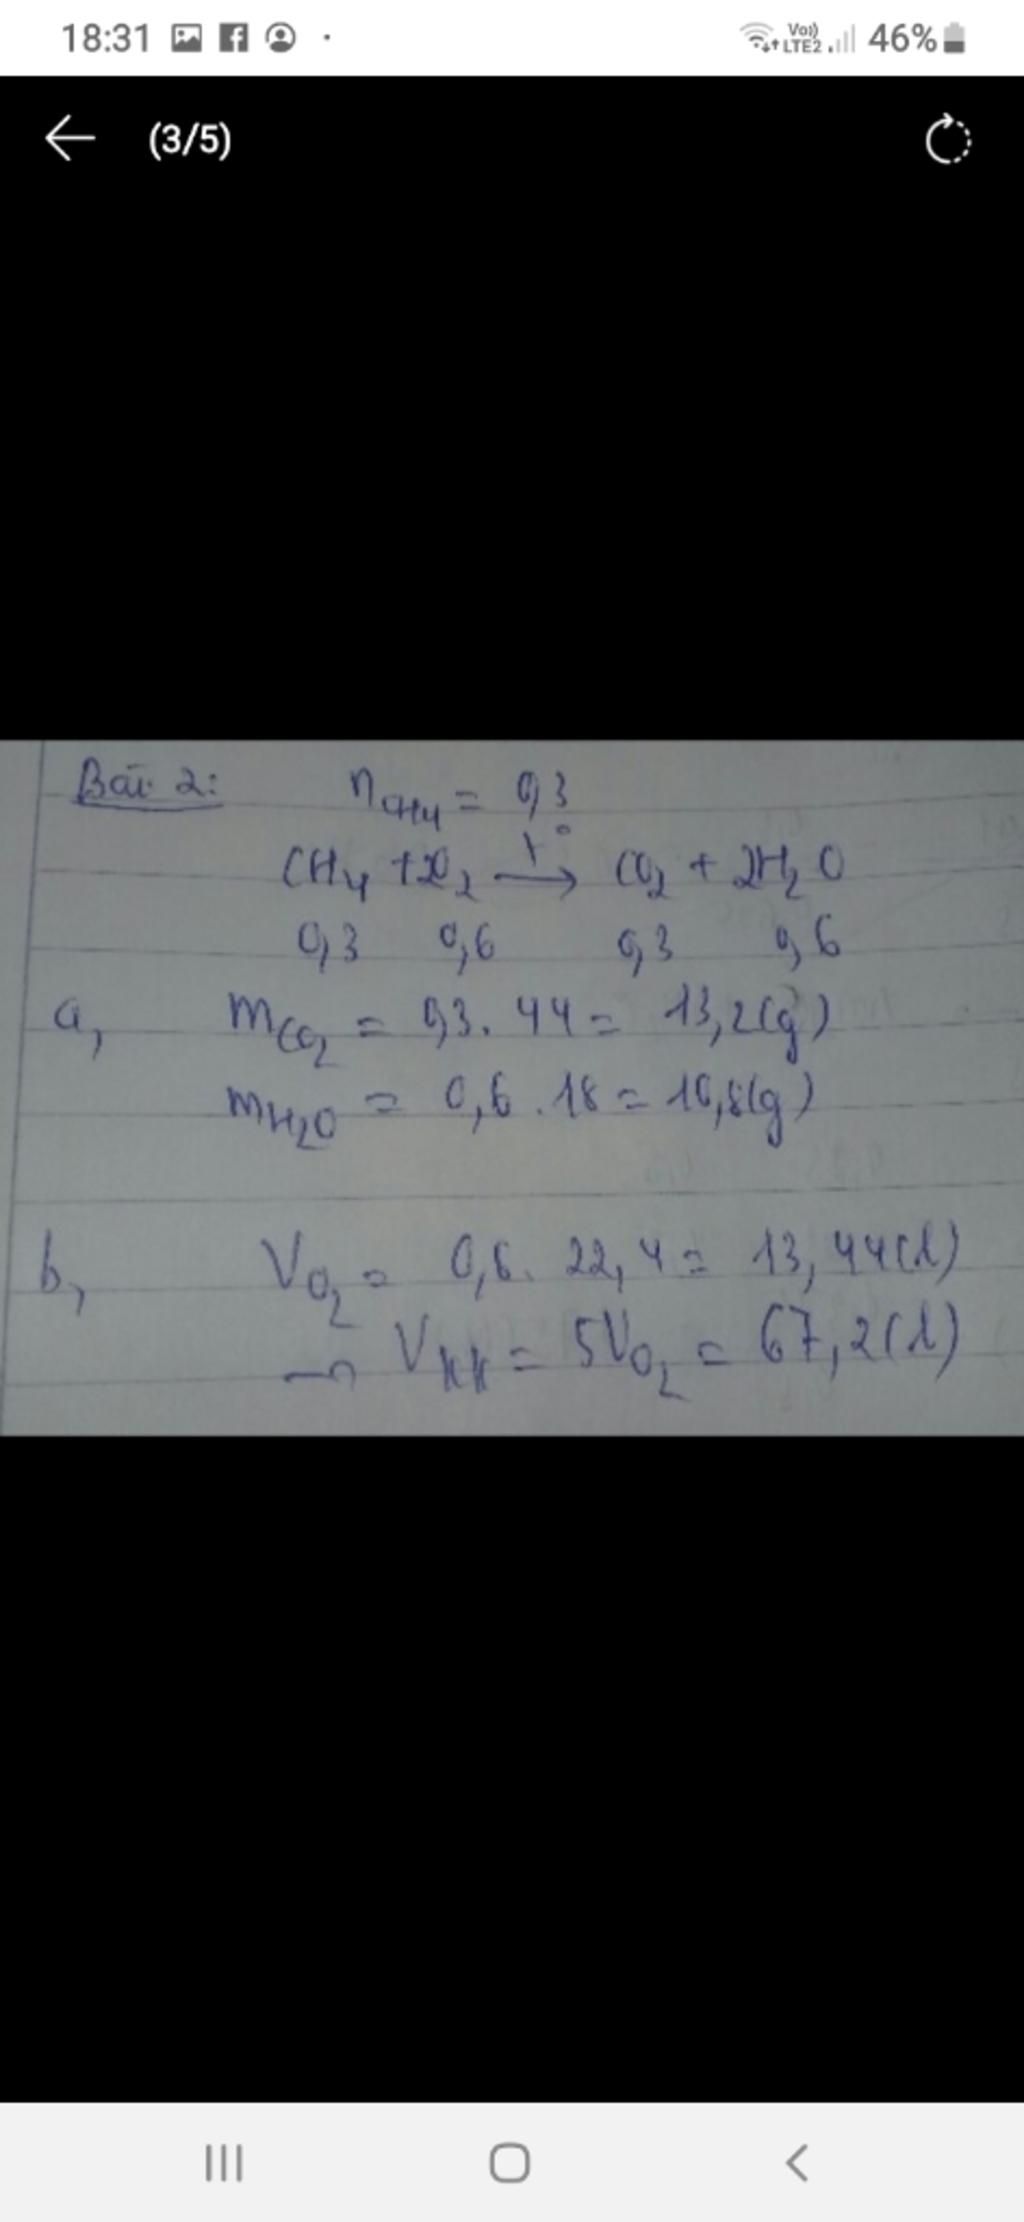 18:31 Vo)) LTE2 46%
(3/5)
Bài 2: nCH4 = 0,3
CH4 + 2O2 t° → CO2 + 2H2O
0,3 0,6 0,3 0,6
a, mCO2 = 0,3 . 44 = 13,2(g)
mH2O = 0,6 . 18 = 10,8(g)
b, VO2 = 0,6 . 22,4 = 13,44(l)
→ VKK = 5VO2 = 67,2(l)